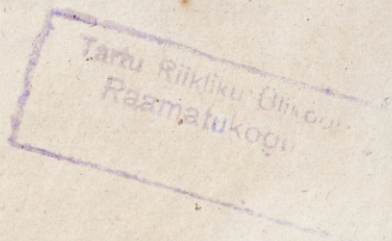 Tartu Riikliku Ülikooli
Raamatukogu